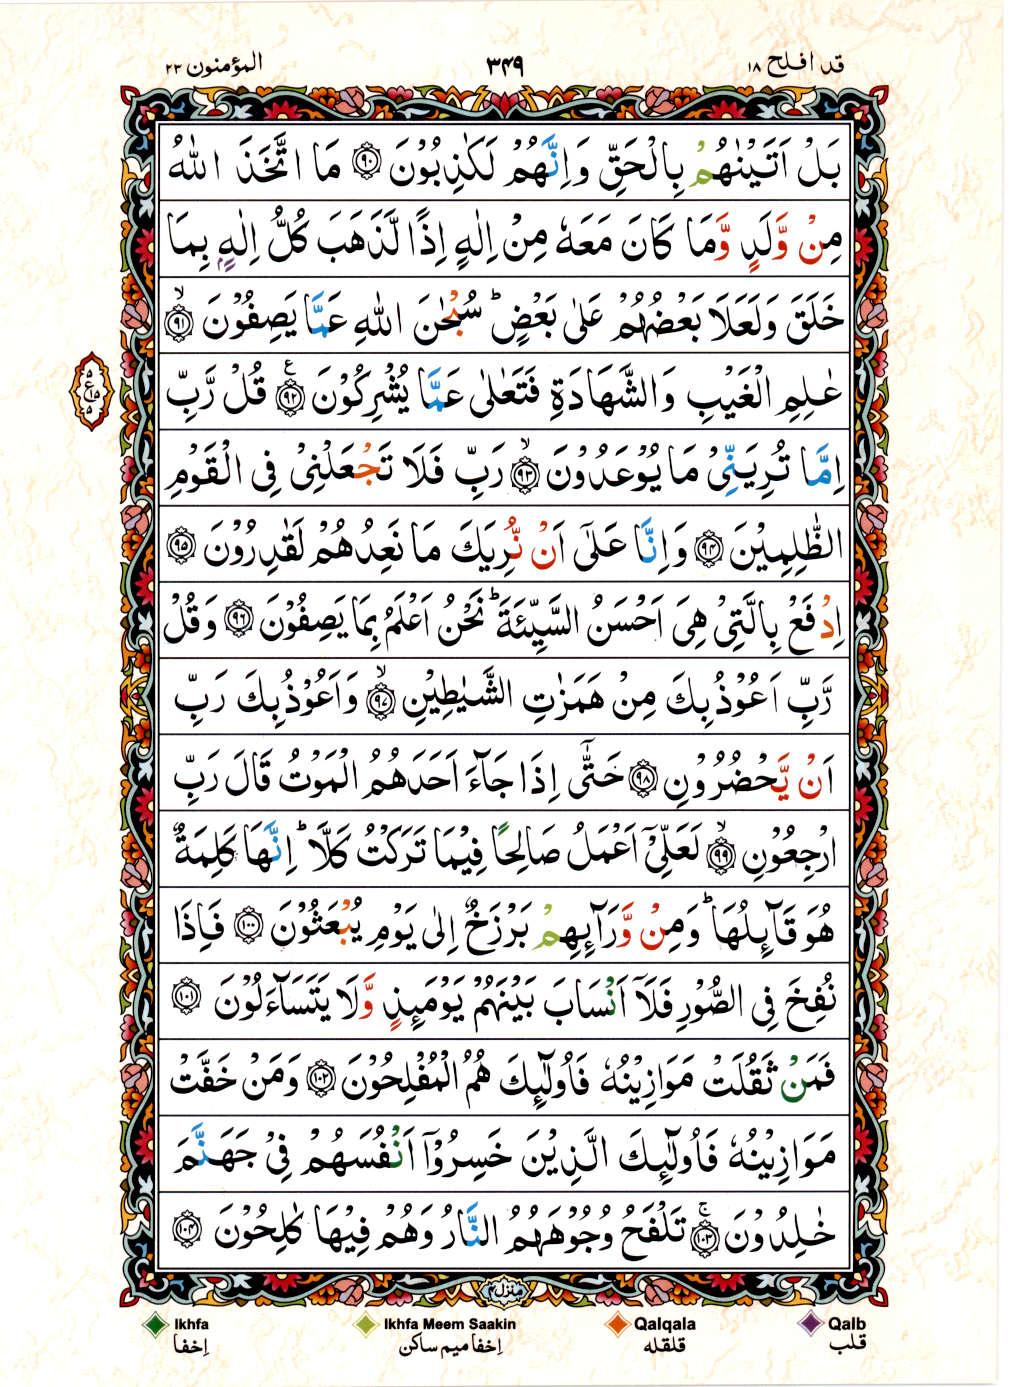 المؤمنون ۲۳
۳۴۹
قد افلح ۱۸
بَلْ اَتَيْنٰهُمْ بِالْحَقِّ وَاِنَّهُمْ لَكٰذِبُوْنَ ﴿۹۰﴾ مَا اتَّخَذَ اللّٰهُ
مِنْ وَّلَدٍ وَّمَا كَانَ مَعَهٗ مِنْ اِلٰهٍ اِذًا لَّذَهَبَ كُلُّ اِلٰهٍۭ بِمَا
خَلَقَ وَلَعَلَا بَعْضُهُمْ عَلٰى بَعْضٍ ؕ سُبْحٰنَ اللّٰهِ عَمَّا يَصِفُوْنَ ۙ﴿۹۱﴾
عٰلِمِ الْغَيْبِ وَالشَّهَادَةِ فَتَعٰلٰى عَمَّا يُشْرِكُوْنَ ﴿۹۲﴾ ع قُلْ رَّبِّ
ع ۵ ۱۵ ۵
اِمَّا تُرِيَنِّىْ مَا يُوْعَدُوْنَ ۙ﴿۹۳﴾ رَبِّ فَلَا تَجْعَلْنِىْ فِى الْقَوْمِ
الظّٰلِمِيْنَ ﴿۹۴﴾ وَاِنَّا عَلٰٓى اَنْ نُّرِيَكَ مَا نَعِدُهُمْ لَقٰدِرُوْنَ ﴿۹۵﴾
اِدْفَعْ بِالَّتِىْ هِىَ اَحْسَنُ السَّيِّئَةَ ؕ نَحْنُ اَعْلَمُ بِمَا يَصِفُوْنَ ﴿۹۶﴾ وَقُلْ
رَّبِّ اَعُوْذُ بِكَ مِنْ هَمَزٰتِ الشَّيٰطِيْنِ ۙ﴿۹۷﴾ وَاَعُوْذُ بِكَ رَبِّ
اَنْ يَّحْضُرُوْنِ ﴿۹۸﴾ حَتّٰٓى اِذَا جَآءَ اَحَدَهُمُ الْمَوْتُ قَالَ رَبِّ
ارْجِعُوْنِ ۙ﴿۹۹﴾ لَعَلِّىْٓ اَعْمَلُ صَالِحًا فِيْمَا تَرَكْتُ كَلَّا ؕ اِنَّهَا كَلِمَةٌ
هُوَ قَآئِلُهَا ؕ وَمِنْ وَّرَآئِهِمْ بَرْزَخٌ اِلٰى يَوْمِ يُبْعَثُوْنَ ﴿۱۰۰﴾ فَاِذَا
نُفِخَ فِى الصُّوْرِ فَلَآ اَنْسَابَ بَيْنَهُمْ يَوْمَئِذٍ وَّلَا يَتَسَآءَلُوْنَ ﴿۱۰۱﴾
فَمَنْ ثَقُلَتْ مَوَازِيْنُهٗ فَاُولٰٓئِكَ هُمُ الْمُفْلِحُوْنَ ﴿۱۰۲﴾ وَمَنْ خَفَّتْ
مَوَازِيْنُهٗ فَاُولٰٓئِكَ الَّذِيْنَ خَسِرُوْٓا اَنْفُسَهُمْ فِىْ جَهَنَّمَ
خٰلِدُوْنَ ۚ﴿۱۰۳﴾ تَلْفَحُ وُجُوْهَهُمُ النَّارُ وَهُمْ فِيْهَا كٰلِحُوْنَ ﴿۱۰۴﴾
منزل ۴
Ikhfa
Ikhfa Meem Saakin
Qalqala
Qalb
اِخفا
اِخفا میم ساکن
قلقله
قلب